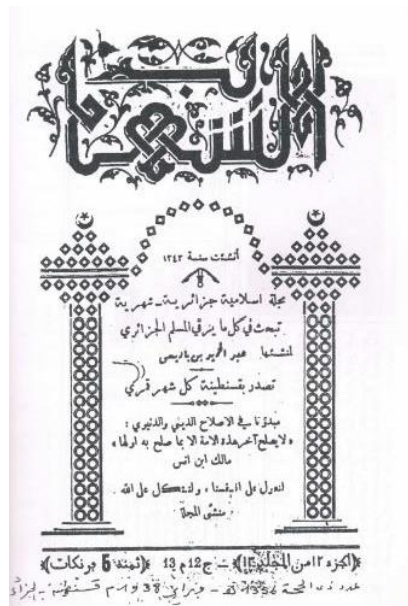 الشهاب
أنشئت سنة ١٣٤٣
مجلة اسلامية جزائرية ـ شهرية
تبحث في كل ما يرقي المسلم الجزائري
لمنشئها عبد الحميد بن باديس
تصدر بقسنطينة كل شهر قمري
مبدؤنا في الاصلاح الديني والدنيوي :
« لا يصلح آخر هذه الامة الا بما صلح به اولها »
مالك ابن انس
لنعول على انفسنا ، ولنتكل على الله
منشئ المجلة
﴿الجزء ١٢ من المجلد ١٣﴾ ـ ج 12 م 13 ﴿ثمنه 5 فرنكات﴾
عدد ذي الحجة 1356 هـ - فبراير 1938 م قسنطينة - الجزائر